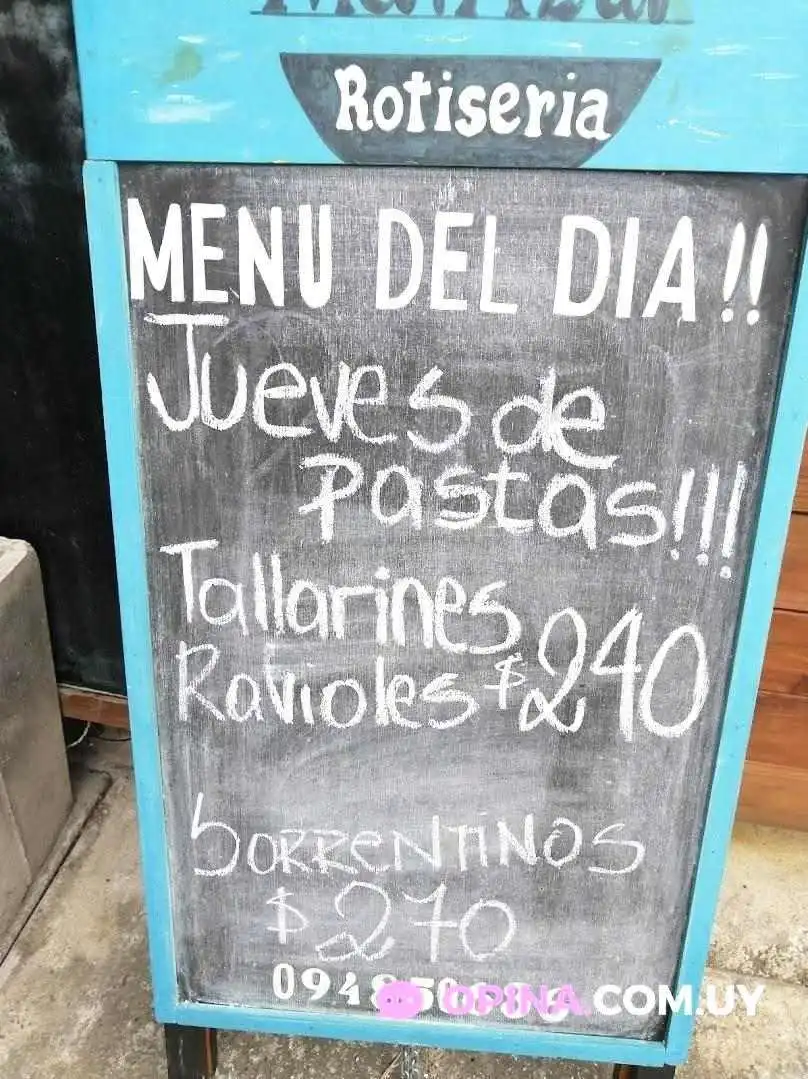 Rotiseria
MENU DEL DIA!!
Jueves de
Pastas!!!
Tallarines
Ravioles $240
Sorrentinos
$270
OPINA.COM.UY